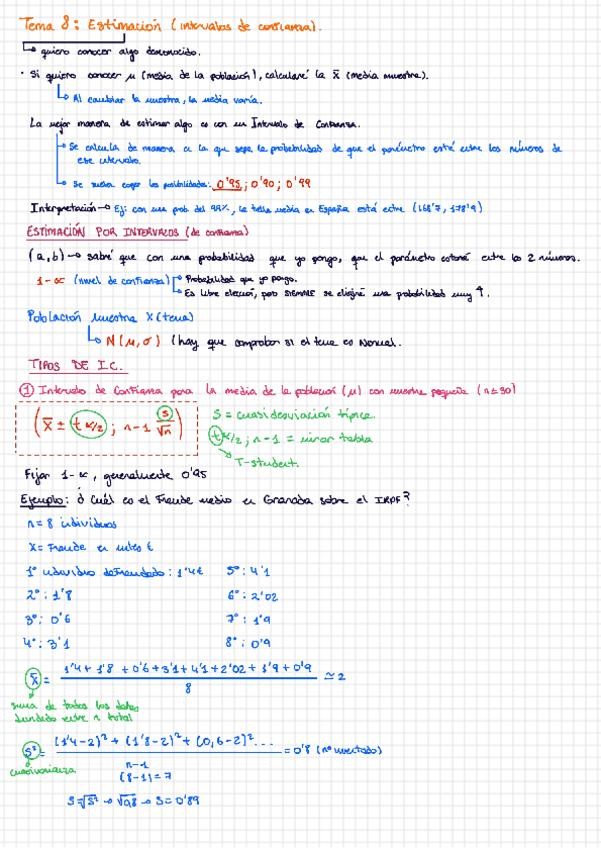 Tema 8: Estimación (intervalos de confianza).
quiero conocer algo desconocido.
· Si quiero conocer μ (media de la población), calcularé la x̄ (media muestra).
Al cambiar la muestra, la media varía.
La mejor manera de estimar algo es con un Intervalo de Confianza.
Se calcula de manera a la que sepa la probabilidad de que el parámetro esté entre los números de
ese intervalo.
Se suelen coger las posibilidades: 0'95; 0'90; 0'99
Interpretación → Ej: con una prob. del 99%, la talla media en España está entre (168'7, 178'9)
ESTIMACIÓN POR INTERVALOS (de confianza)
(a,b) → sabré que con una probabilidad que yo pongo, que el parámetro estará entre los 2 números.
1-α (nivel de confianza) Probabilidad que yo pongo.
Es libre elección, pero SIEMPRE se elegirá una probabilidad muy ↑.
Población muestra X (tema)
N(μ,σ) (hay que comprobar si el tema es Normal.
TIPOS DE I.C.
① Intervalo de Confianza para la media de la población (μ) con muestra pequeña (n≤30)
(x̄ ± t α/2 ; n-1 S/√n)
S = cuasidesviación típica.
t α/2; n-1 = mirar tabla
T-student.
Fijar 1-α, generalmente 0'95
Ejemplo: ¿Cuál es el Fraude medio en Granada sobre el IRPF?
n = 8 individuos
X = Fraude en miles €
1º individuo defraudado: 1'4€ 5º: 4'1
2º: 1'8 6º: 2'02
3º: 0'6 7º: 1'9
4º: 3'1 8º: 0'9
x̄ = (1'4 + 1'8 + 0'6 + 3'1 + 4'1 + 2'02 + 1'9 + 0'9) / 8 ≃ 2
suma de todos los datos
dividido entre n total
S² = ((1'4-2)² + (1'8-2)² + (0,6-2)²...) / n-1 = 0'8 (nº inventado)
(8-1) = 7
cuasivarianza
S = √S² → √0,8 → S = 0'89